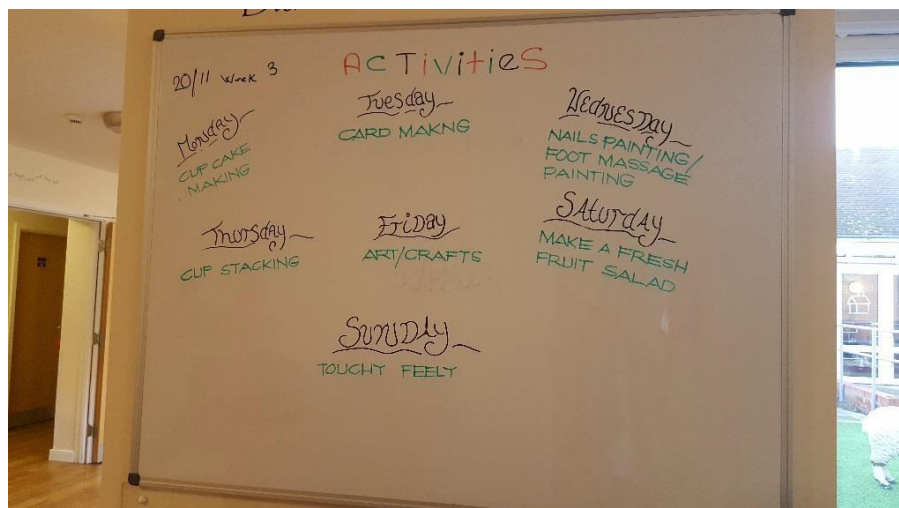 20/11 Week 3
ACTivitieS
Monday
CUP CAKE
MAKING
Tuesday
CARD MAKNG
WEDNESDay
NAILS PAINTING/
FOOT MASSAGE
PAINTING
Thursday
CUP STACKING
FriDay
ART/CRAFTS
SAturDAY
MAKE A FRESH
FRUIT SALAD
SUNDAy
TOUCHY FEELY